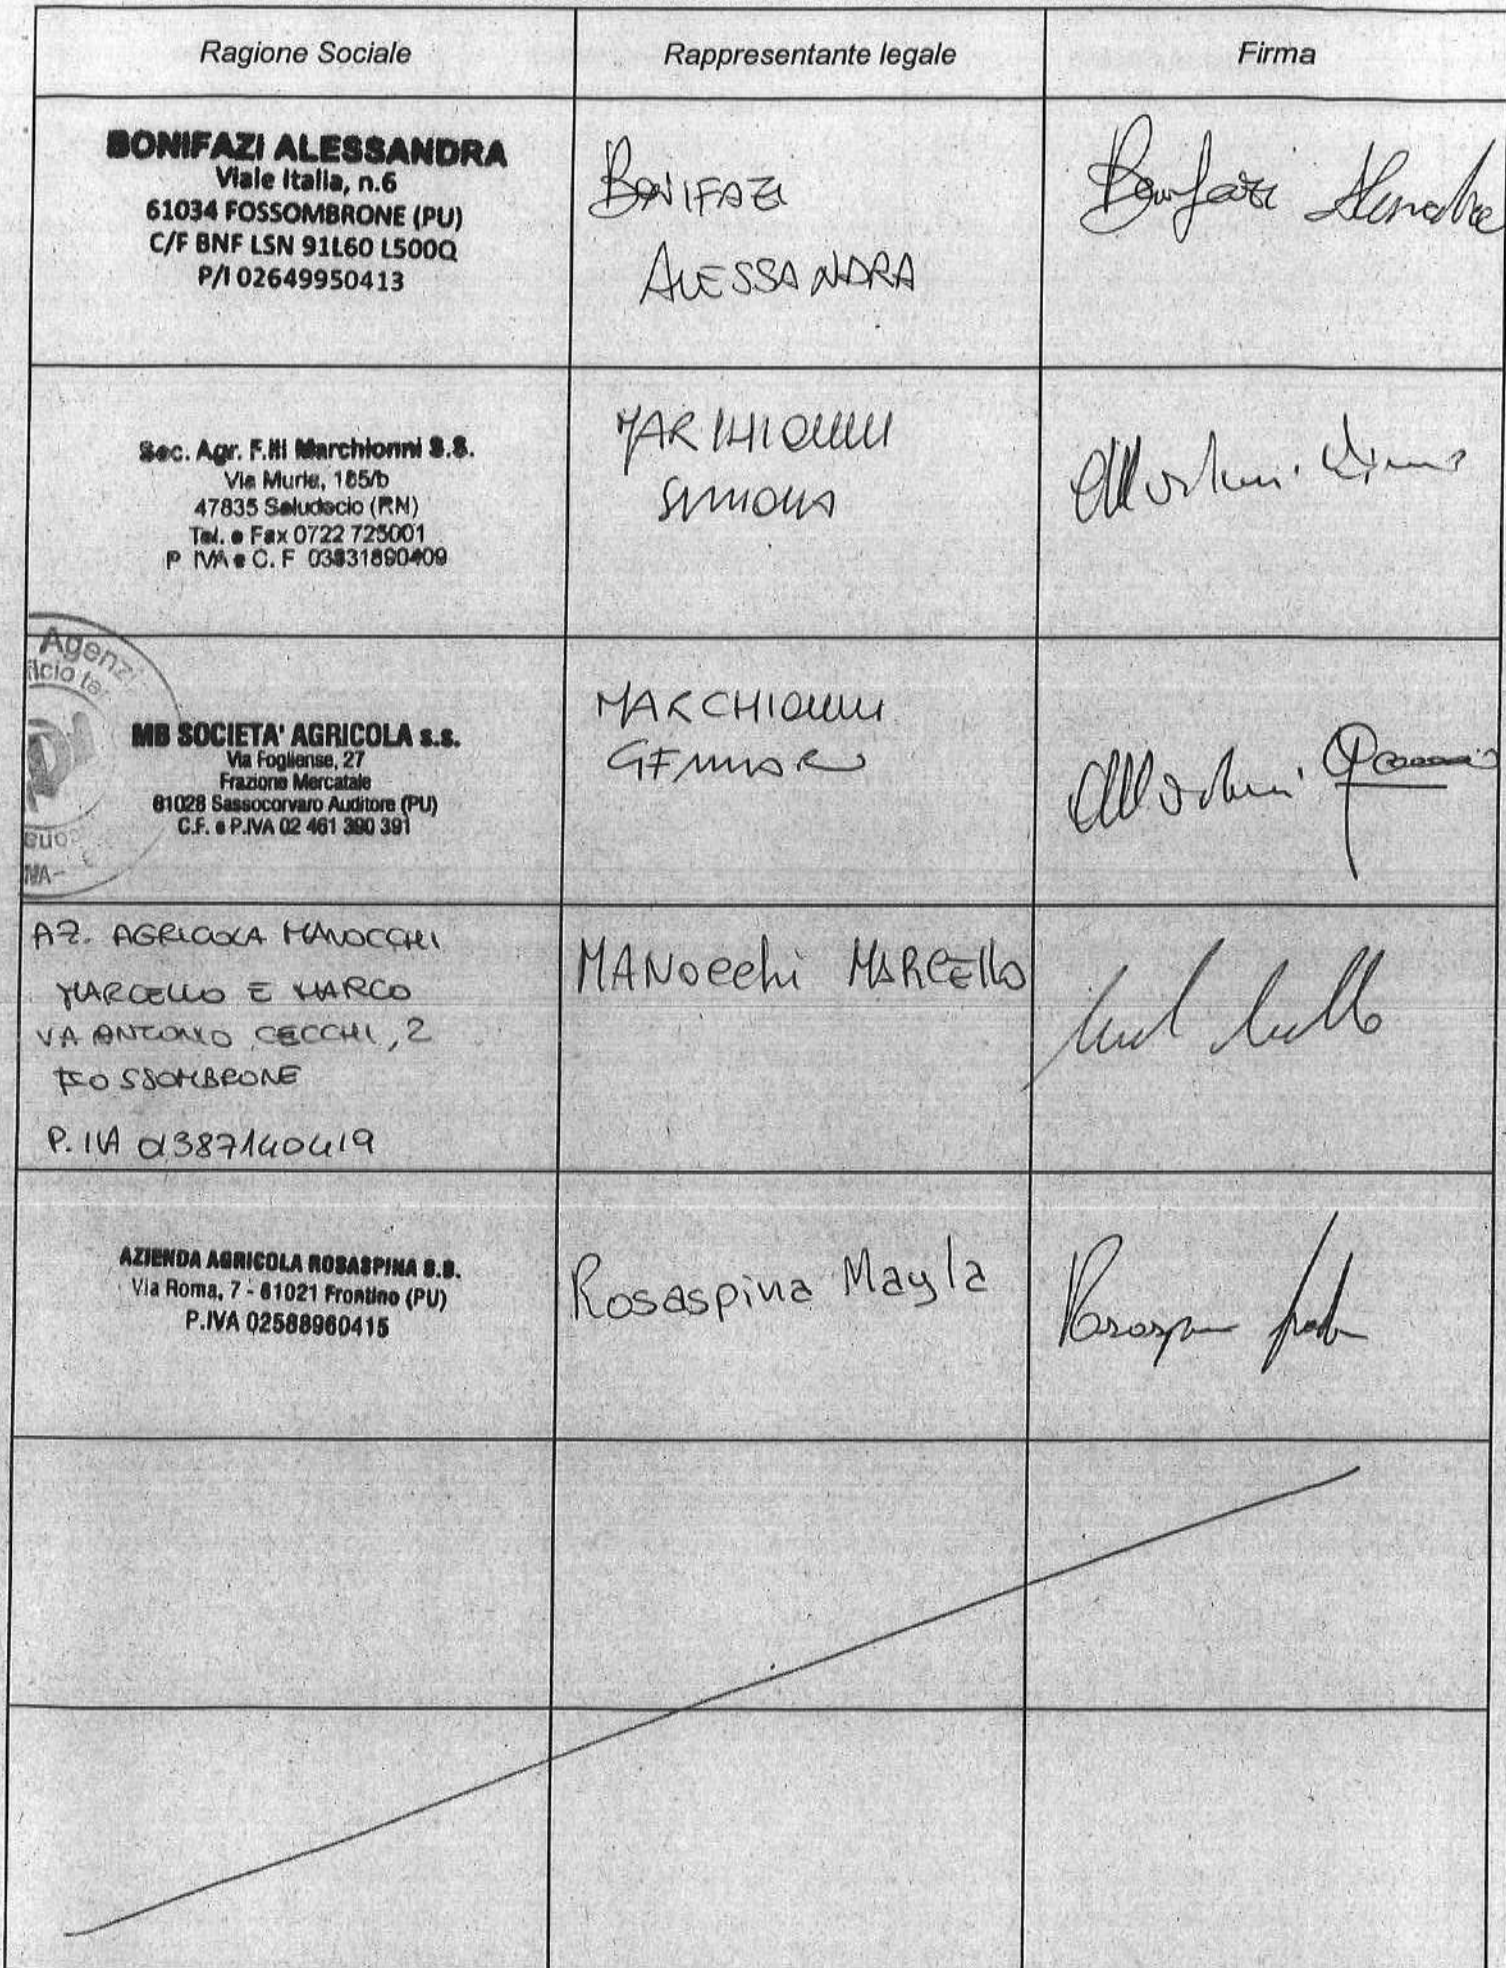 Ragione Sociale
Rappresentante legale
Firma
BONIFAZI ALESSANDRA
Viale Italia, n.6
61034 FOSSOMBRONE (PU)
C/F BNF LSN 91L60 L500Q
P/I 02649950413
BONIFAZI
ALESSANDRA
Bonifazi Alessandra
Soc. Agr. F.lli Marchionni S.S.
Via Murle, 185/b
47835 Saludecio (RN)
Tel. e Fax 0722 725001
P IVA e C. F 03831890409
MARCHIONNI
SIMONA
Agenzi
ficio ter
MB SOCIETA' AGRICOLA s.s.
Via Fogliense, 27
Frazione Mercatale
61028 Sassocorvaro Auditore (PU)
C.F. e P.IVA 02 461 390 391
MARCHIONNI
AZ. AGRICOLA MANOCCHI
MARCELLO E MARCO
VA ANTONIO CECCHI, 2
FOSSOMBRONE
P. IVA 01387140419
MANOCChi MARCEllo
AZIENDA AGRICOLA ROSASPINA S.S.
Via Roma, 7 - 61021 Frontino (PU)
P.IVA 02588960415
Rosaspina Mayla